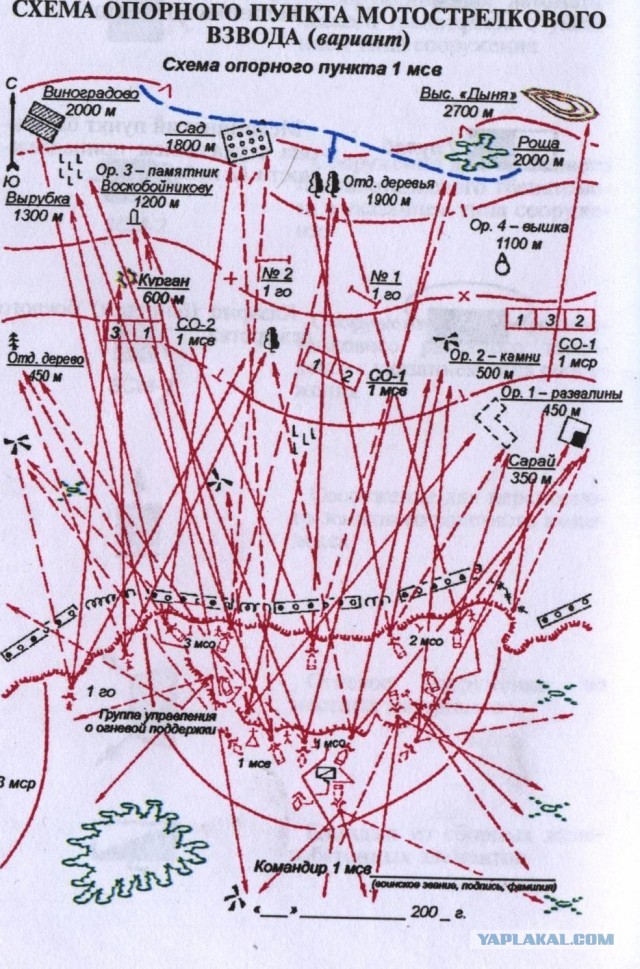 СХЕМА ОПОРНОГО ПУНКТА МОТОСТРЕЛКОВОГО
ВЗВОДА (вариант)
Схема опорного пункта 1 мсв
С
Ю
Виноградово
2000 м
Сад
1800 м
Выс. «Дыня»
2700 м
Роща
2000 м
Вырубка
1300 м
Ор. 3 – памятник
Воскобойникову
1200 м
Отд. деревья
1900 м
Ор. 4 – вышка
1100 м
Курган
600 м
№ 2
1 го
№ 1
1 го
3 1
СО-2
1 мсв
1 2
СО-1
1 мсв
3 2
СО-1
1 мср
Отд. дерево
450 м
Ор. 2 – камни
500 м
Ор. 1 – развалины
450 м
Сарай
350 м
3 мсо
2 мсо
1 го
Группа управления
о огневой поддержки
1 мсв
1 мсо
3 мср
Командир 1 мсв
(воинское звание, подпись, фамилия)
«___» ______________ 200_ г.
YAPLAKAL.COM